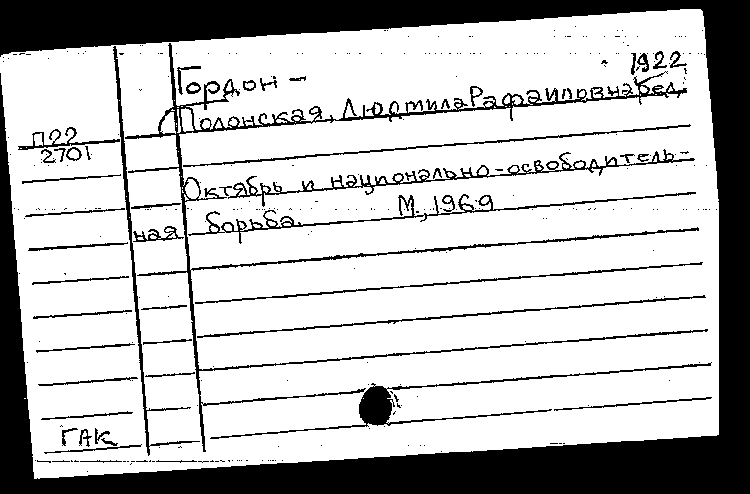 Гордон – 1922
Полонская, Людмила Рафаиловна, ред.
П22
2701
Октябрь и национально-освободитель-
ная борьба. М., 1969
ГАК